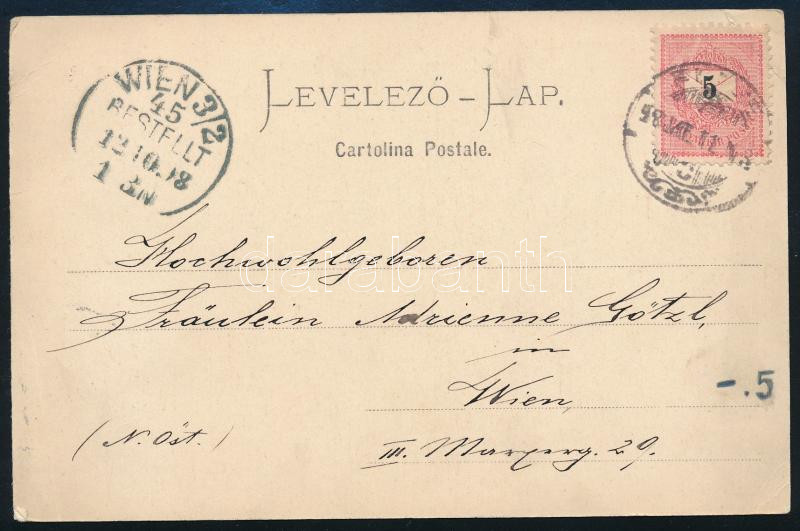 LEVELEZŐ – LAP.
Cartolina Postale.
WIEN 3/2
45
BESTELLT
12.10.98
1 3N
5
Hochwohlgeboren
Fräulein Adrienne Götzl,
in
Wien,
(N. Öst.)
III. Marxerg. 29.
-.5
darabanth